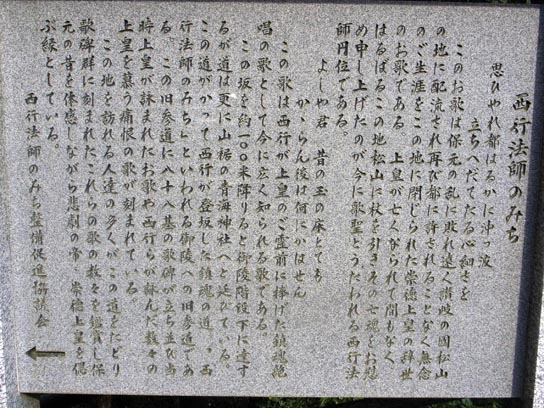 西行法師のみち
思ひやれ都はるかに沖つ波
立ちへだてたる心細さを
このお歌は保元の乱に敗れ遠く讃岐の国松山
の地に配流され再び都に許されることなく無念
のご生涯をこの地に閉じられた崇徳上皇の辞世
のお歌である 上皇が亡くなられて間もなく
はるばるこの地松山に杖を引きその亡魂をお慰
め申し上げたのが今に歌聖とうたわれる西行法
師円位である。
よしや君 昔の玉の床とても
かゝらん後は何にかはせん
この歌は西行が上皇のご霊前に捧げた鎮魂絶
唱の歌として今に広く知られる歌である。
この坂を約一〇〇米降りると御陵階段下に達す
るが道は更に山裾の青海神社へと延びている。
この道がかって西行が登坂した鎮魂の道、、西
行法師のみち」といわれる御陵への旧参道であ
る この旧参道に八十八基の歌碑が立ち並び当
時上皇が詠まれたお歌や西行らが詠んだ数々の
上皇を慕う痛恨の歌が刻まれている
この地を訪れる人達の多くがこの道をたどり
歌碑群に刻まれたこれらの歌の数々を鑑賞し保
元の昔を体感しながら悲劇の帝、崇徳上皇を偲
ぶ縁としている。
西行法師のみち整備促進協議会